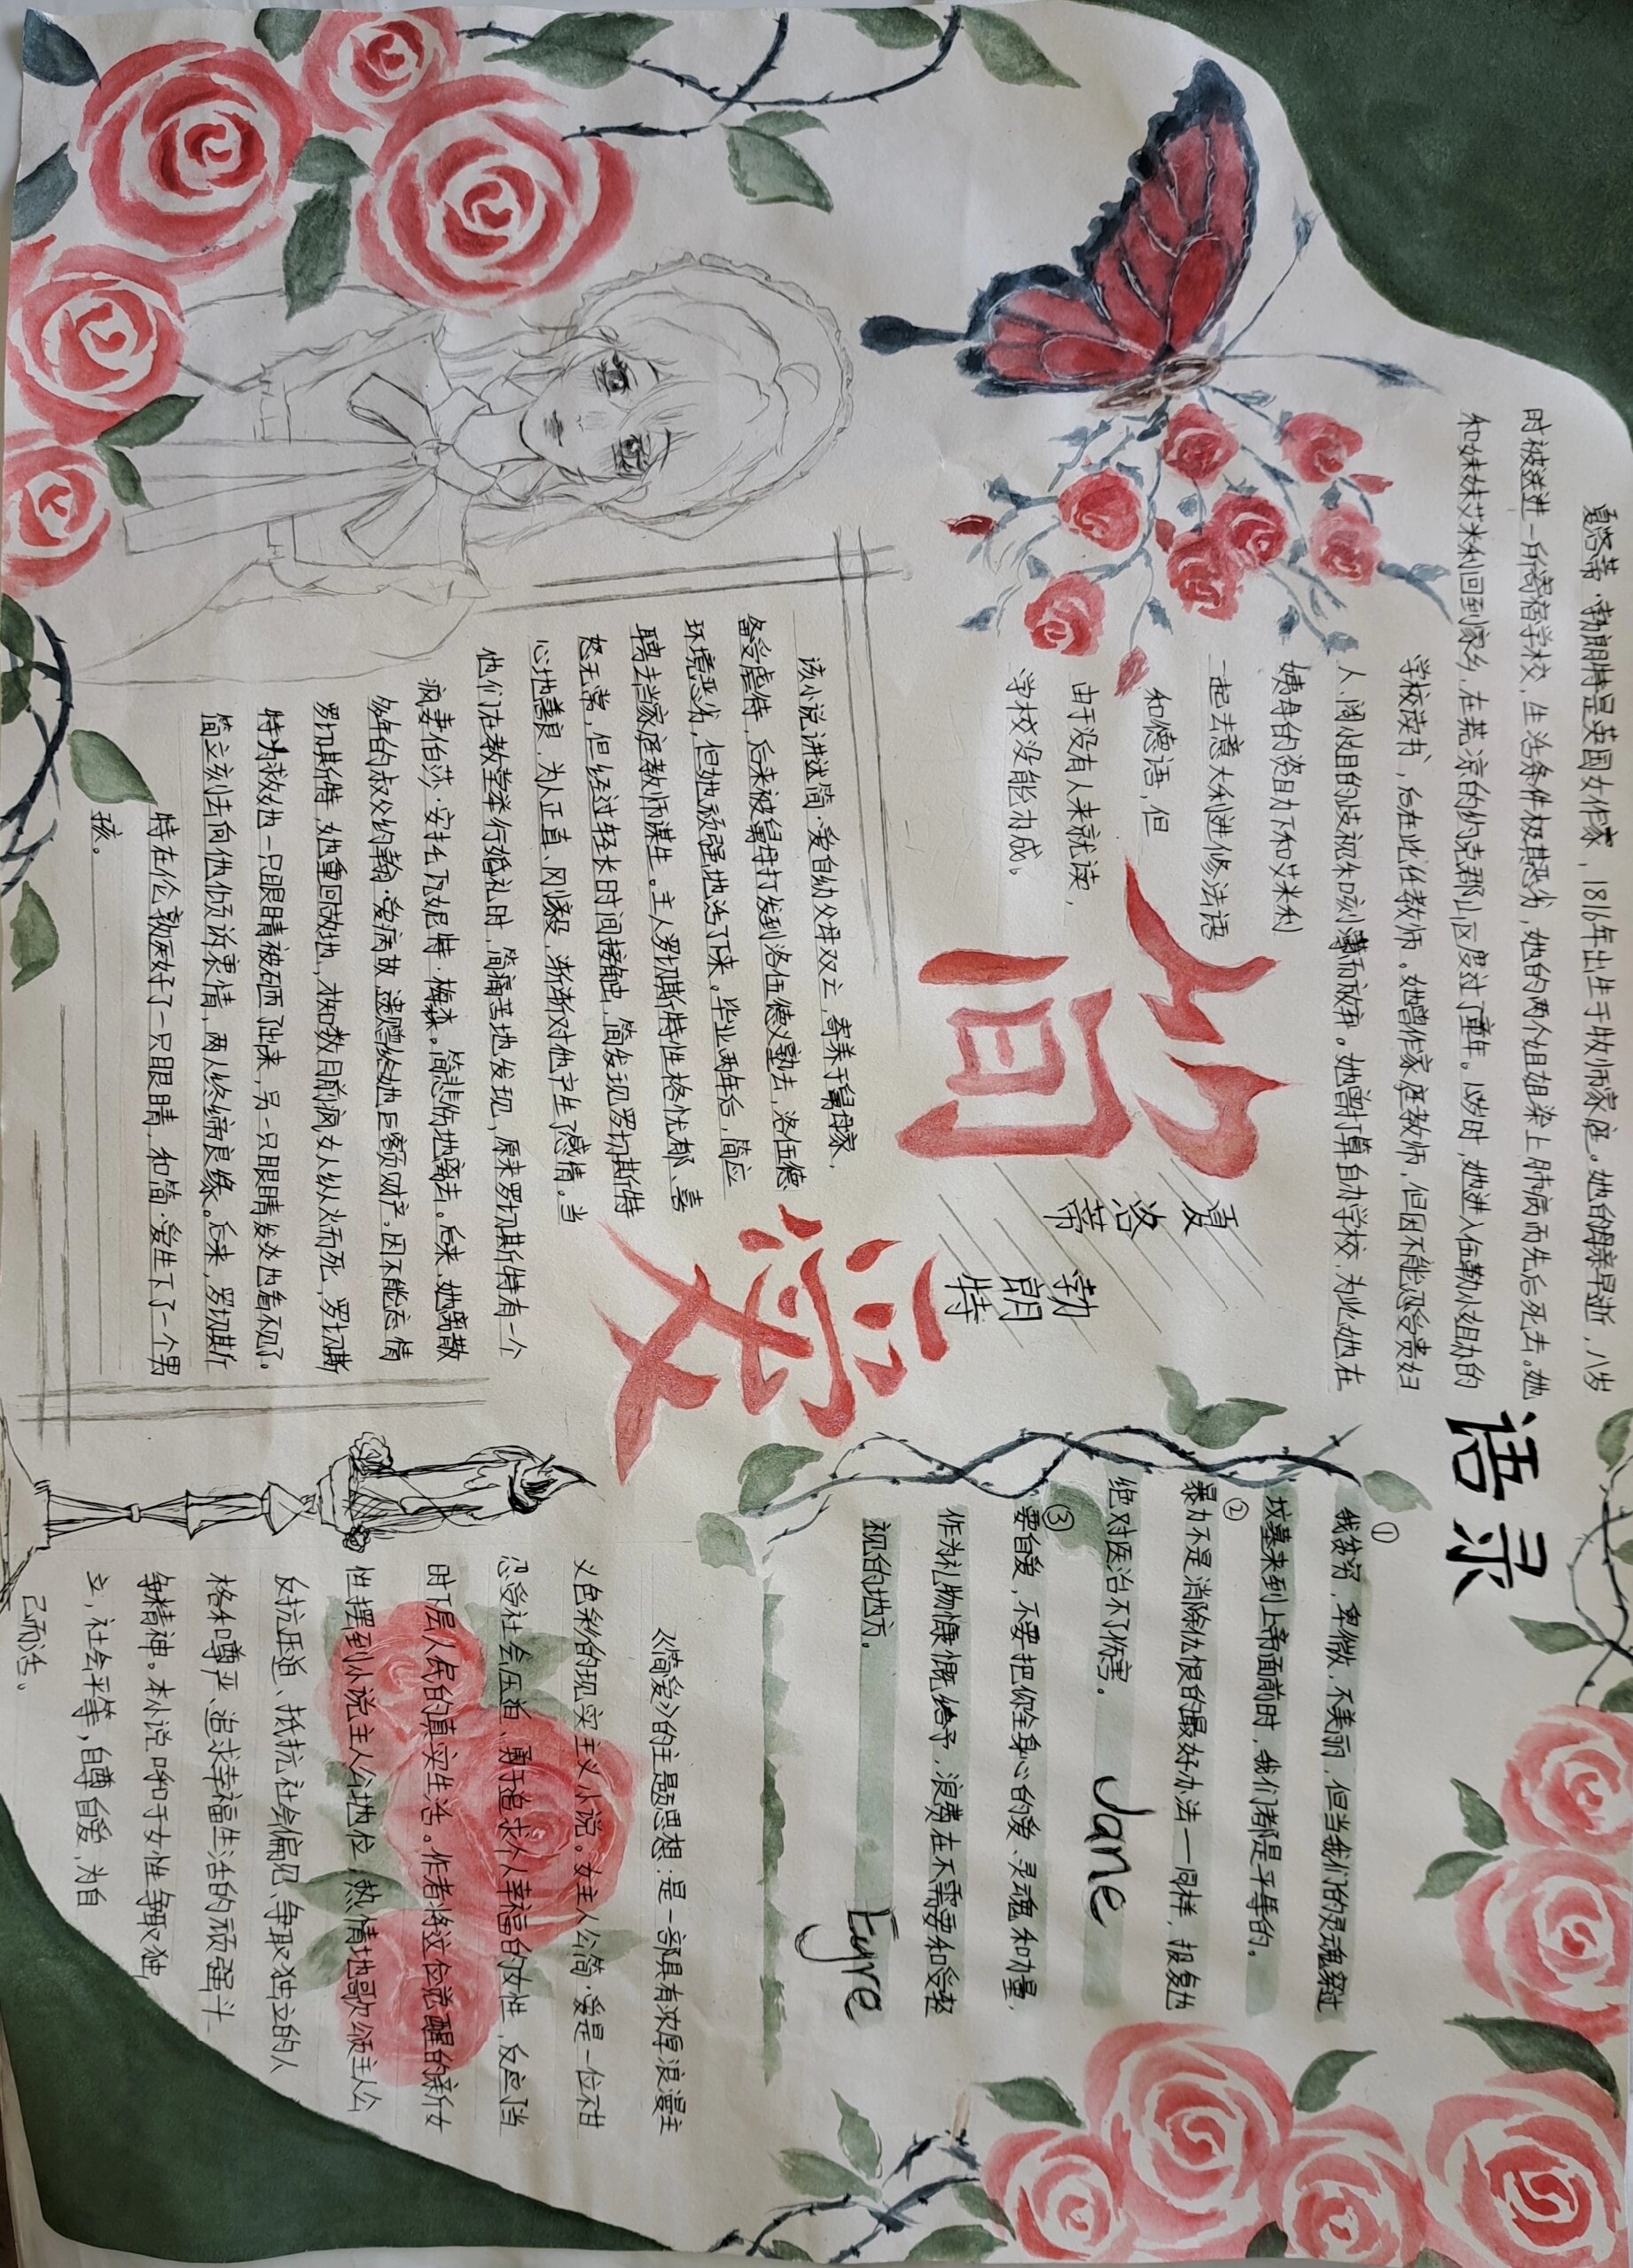 夏洛蒂·勃朗特是英国女作家，1816年出生于牧师家庭。她的母亲早逝，八岁
时被送进一所寄宿学校，生活条件极其恶劣，她的两个姐姐染上肺病而先后死去。她
和妹妹艾米利回到家乡，在荒凉的约克郡山区度过了童年。15岁时，她进入伍勒小姐办的
学校读书，后在此任教师。她增作家庭教师，但因不能忍受贵妇
人、阔小姐的歧视和刻薄而放弃。她增打算自办学校，为此她在
姨母的资助下和艾米利
一起去意大利进修法语
和德语，但
由于没有人来就读，
学校没能办成。
简爱
夏洛蒂
勃朗特
该小说讲述简·爱自幼父母双亡，寄养于舅母家，
备受虐待，后来被舅母打发到洛伍德义塾去，洛伍德
环境恶劣，但她顽强地活了下来。毕业两年后，简应
聘去当家庭教师谋生。主人罗切斯特性格忧郁、喜
怒无常，但经过较长时间接触，简发现罗切斯特
心地善良，为人正直、刚毅，渐渐对他产生了感情。当
他们在教堂举行婚礼时，简痛苦地发现，原来罗切斯特有一个
疯妻伯莎·安托瓦妮特·梅森。简悲伤地离去。后来，她离散
多年的叔父约翰·爱病故，遗赠给她巨额财产。因不能忘情
罗切斯特，她重回故地，才知数日前疯女人纵火而死，罗切斯
特为救她一只眼睛被砸了出来，另一只眼睛发炎也看不见了。
简立刻去向他倾诉衷情，两人终缔良缘。后来，罗切斯
特在伦敦医好了一只眼睛，和简·爱生下了一个男
孩。
语录
①
我贫穷，卑微，不美丽，但当我们的灵魂穿过
坟墓来到上帝面前时，我们都是平等的。
②
暴力不是消除仇恨的最好办法—同样，报复也
绝对医治不了伤害。
③
要自爱，不要把你全身心的爱、灵魂和力量，
作为礼物慷慨给予，浪费在不需要和受轻
视的地方。
Jane
Eyre
《简爱》的主题思想：是一部具有浓厚浪漫主
义色彩的现实主义小说。女主人公简·爱是一位不甘
忍受社会压迫、勇于追求个人幸福的女性，反应当
时下层人民的真实生活。作者将这位觉醒的新女
性摆到小说主人公地位，热情地歌颂主人公
反抗压迫、抵抗社会偏见、争取独立的人
格和尊严、追求幸福生活的顽强斗
争精神。本小说呼吁女性争取独
立，社会平等，自尊自爱，为自
己而活。